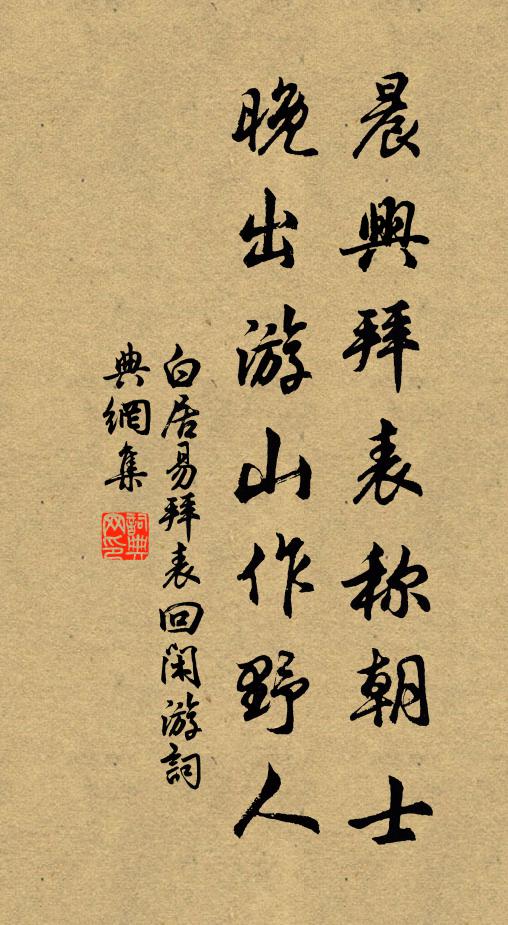 晨興拜表称朝士
晚出游山作野人
白居易拜表回閑游詞
典網集
詞典
网印